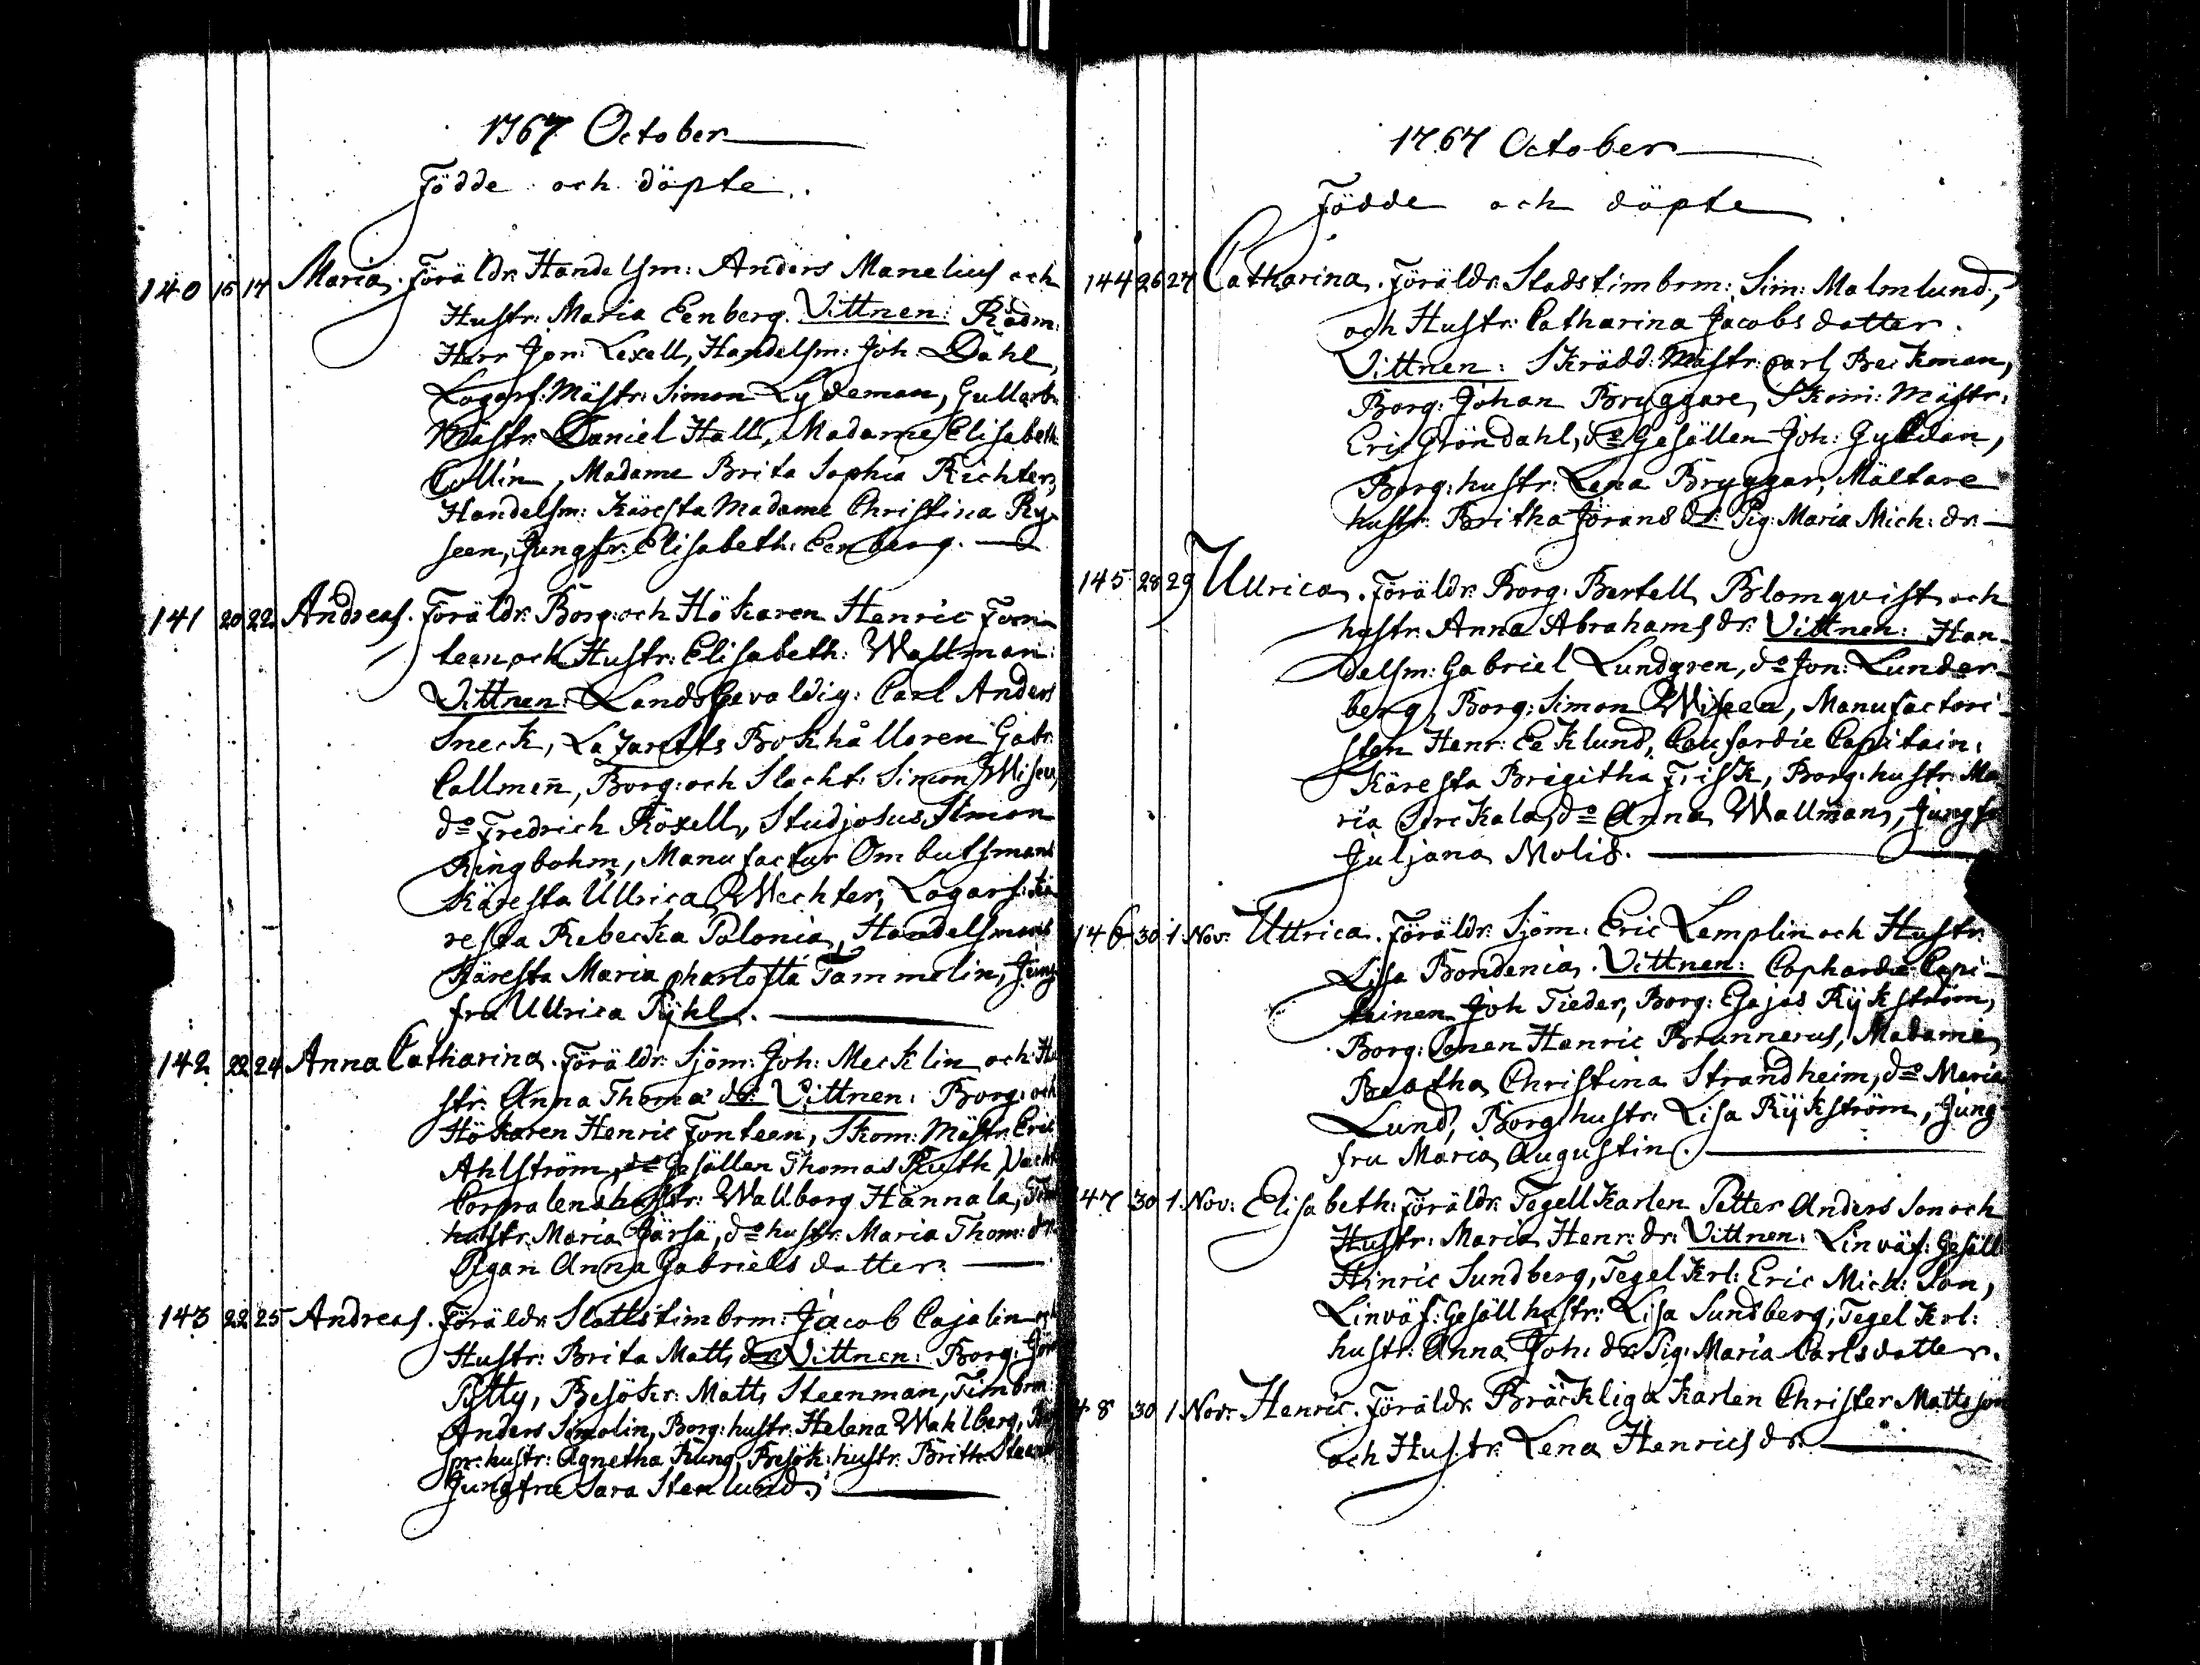 1767 October
Födde och döpte.
140 15 17 Maria. Föräldr: Handelsm: Anders Manelius och
Hustr: Maria Eenberg. Vittnen: Rådm:
Herr Jon: Lexell, Handelsm: Joh: Dahl,
Logarf: Mästr: Simon Lydeman, Gullarb:
Mästr: Daniel Hall, Madame Elisabeth
Collin, Madame Brita Sophia Richter,
Handelsm: Käresta Madame Christina Ry-
seen, Jungfr: Elisabeth: Eenberg.
141 20 22 Andreas. Föräldr: Borg: och Hökaren Henric Fon-
teen och Hustr: Elisabeth: Wallman:
Vittnen: Landsgevaldig: Carl Anders
Sneck, Lazaretts Bokhålloren Gabr:
Callmen̄, Borg: och Slacht: Simon Wiseen,
do Fredrich Röxell, Studjosus Simon
Ringbohm, Manufactur Ombutsmans
Käresta Ullrica Wechter, Logarf: Kä-
resta Rebecka Polonia, Handelsmans
Käresta Maria Charlotta Tammelin, Jung-
fru Ullrica Rÿhl.
142 22 24 Anna Catharina. Föräldr: Sjöm: Joh: Mecklin och Hu
str: Anna Thoma dr: Vittnen: Borg: och
Hökaren Henric Fonteen, Skom: Mästr: Eric
Ahlström, do Gesällen Thomas Ruth, Vacht
Corpralens hustr: Wallborg Hännala,
hustr: Maria Järsä, do hustr: Maria Thom: dr:
Pigan Anna Gabriels datter.
143 22 25 Andreas. Föräldr: Slottstimbrm: Jacob Cajalin och
Hustr: Brita Matts dr: Vittnen: Borg:
Pytty, Besökr: Matts Steenman, Timbrm:
Anders Simolin, Borg: hustr: Helena Wahlberg,
spr: hustr: Agnetha Kung, Besök: hustr: Britha Steenm
Jungfru Sara Stenlund.
1767 October
Födde och döpte
144 26 27 Catharina. Föräldr: Stadstimbrm: Sim: Malmlund,
och Hustr: Catharina Jacobs datter.
Vittnen: Skrädd: Mästr: Carl Beckman,
Borg: Johan Bryggare, Skom: Mästr:
Eric Gröndahl, do Gesällen Joh: Gyldén,
Borg: hustr: Lena Bryggar, Mältare
hustr: Britha Jörans dr: Pig: Maria Mich: dr:
145 28 29 Ullrica. Föräldr: Borg: Bertell Blomqvist och
hustr: Anna Abrahams dr: Vittnen: Han-
delsm: Gabriel Lundgren, do Jon: Lunder-
berg, Borg: Simon Wiseen, Manufactori-
sten Henr: Ecklund, Coufardie Capitain:
Käresta Brigitha Frisk, Borg: hustr: Ma
ria Sorckala, do Anna Wallman, Jungfr
Juljana Molis.
146 30 1 Nov: Ullrica. Föräldr: Sjöm: Eric Lemplin och Hustr:
Lisa Bondenia. Vittnen: Cophardie Capi-
tainen Joh Tieder, Borg: Esajas Rÿkström,
Borg: Sonen Henric Brunnerus, Madame
Beatha Christina Strandheim, do Maria
Lund, Borg hustr: Lisa Rÿkström, Jung
fru Maria Augustin.
147 30 1 Nov: Elisabeth: Föräldr: Tegellkarlen Petter Andersson och
Hustr: Maria Henr: dr: Vittnen: Linväf: Gesäll
Hinric Sundberg, Tegel Krl: Eric Mich: Son,
Linväf: Gesäll hustr: Lisa Sundberg, Tegel Krl:
hustr: Anna Joh: dr: Pig: Maria Carlsdatter.
48 30 1 Nov: Henric. Föräldr: Bräckliga Karlen Christer Mattsson
och Hustr: Lena Henrics dr: